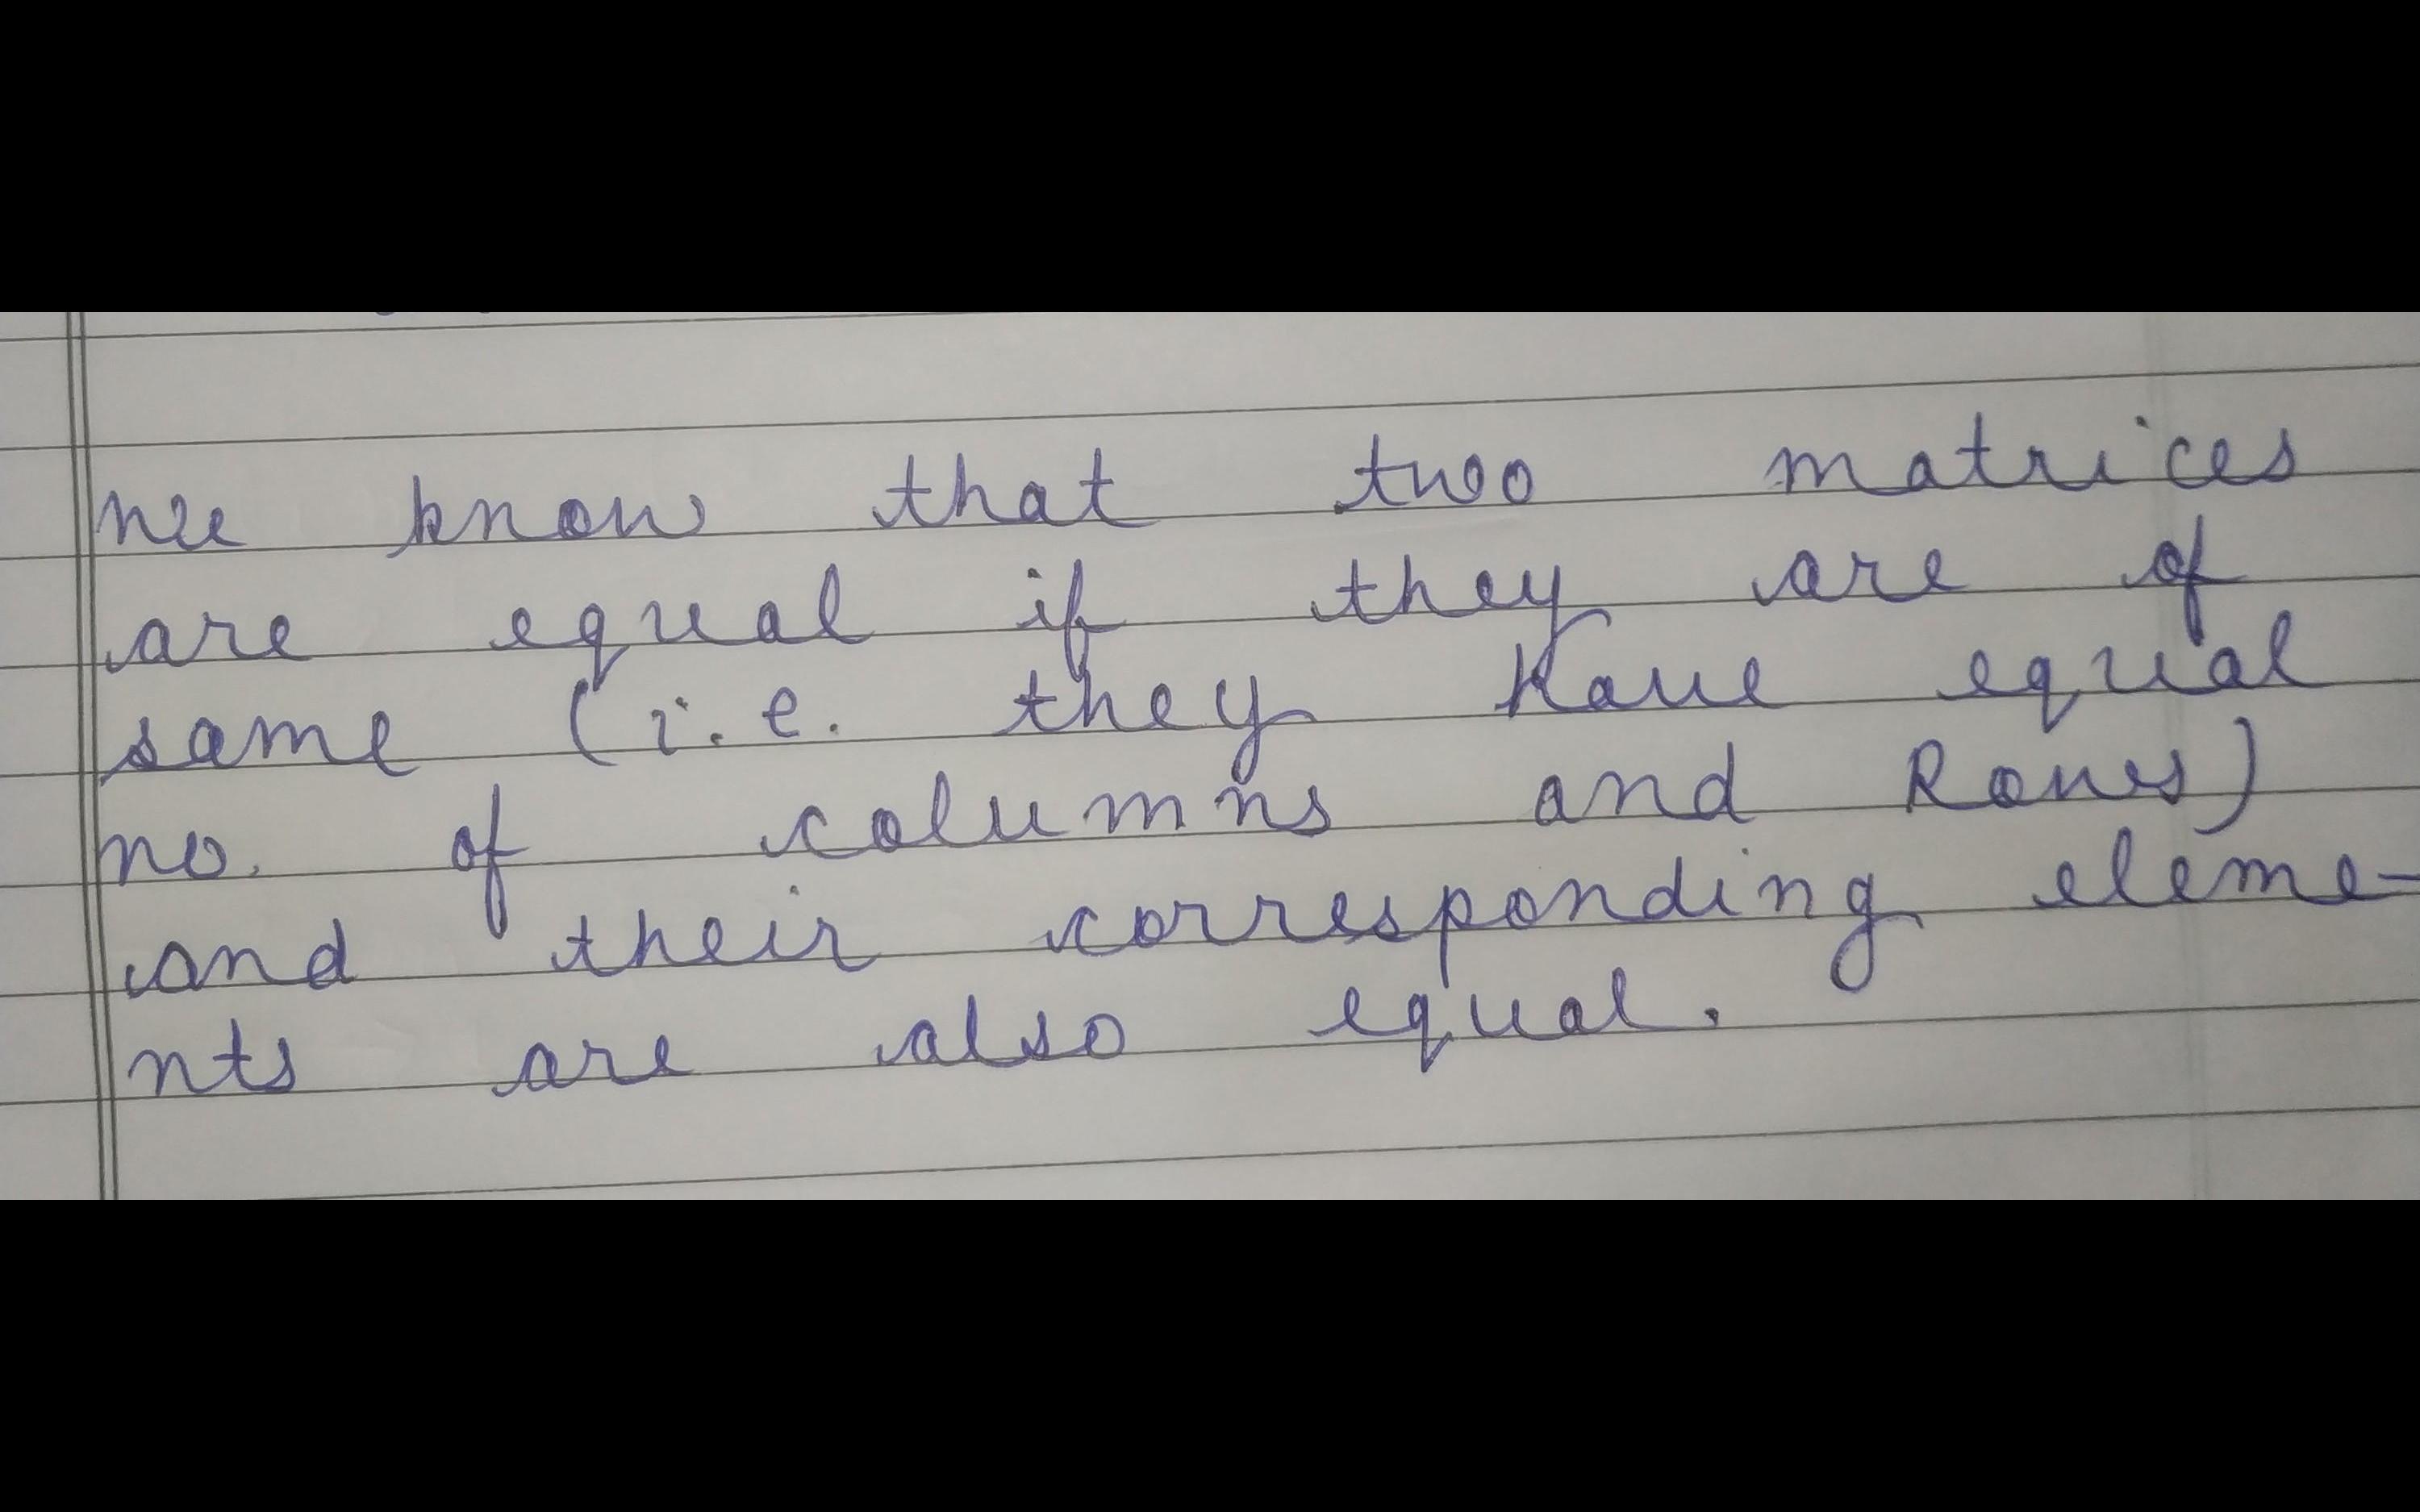 we know that two matrices
are equal if they are of
same (i.e. they have equal
no. of columns and Rows)
and their corresponding eleme-
nts are also equal.